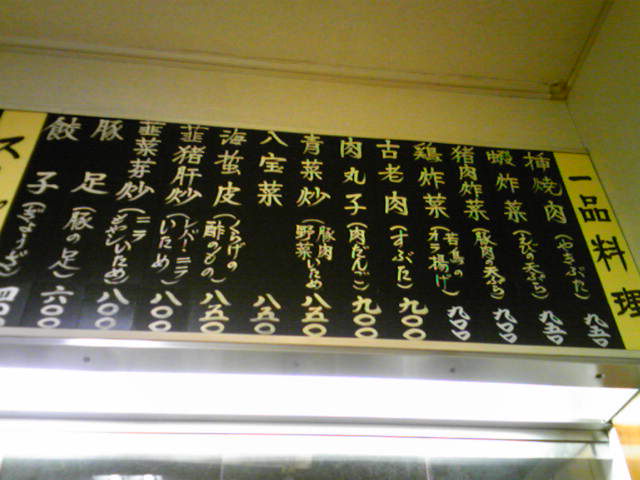 一品料理
挿焼肉(やきぶた)九五〇
蝦炸菜(えびの天ぷら)九五〇
猪肉炸菜(豚肉の天ぷら)九〇〇
鶏炸菜(若鳥のカラ揚げ)九〇〇
古老肉(すぶた)九〇〇
肉丸子(肉だんご)九〇〇
青菜炒(豚肉野菜いため)八五〇
八宝菜 八五〇
海蜇皮(くらげの酢のもの)八五〇
韮猪肝炒(レバーニラいため)八〇〇
韮菜芽炒(ニラもやしいため)八〇〇
豚足(豚の足)六〇〇
餃子(ぎょうざ)四〇〇
ス